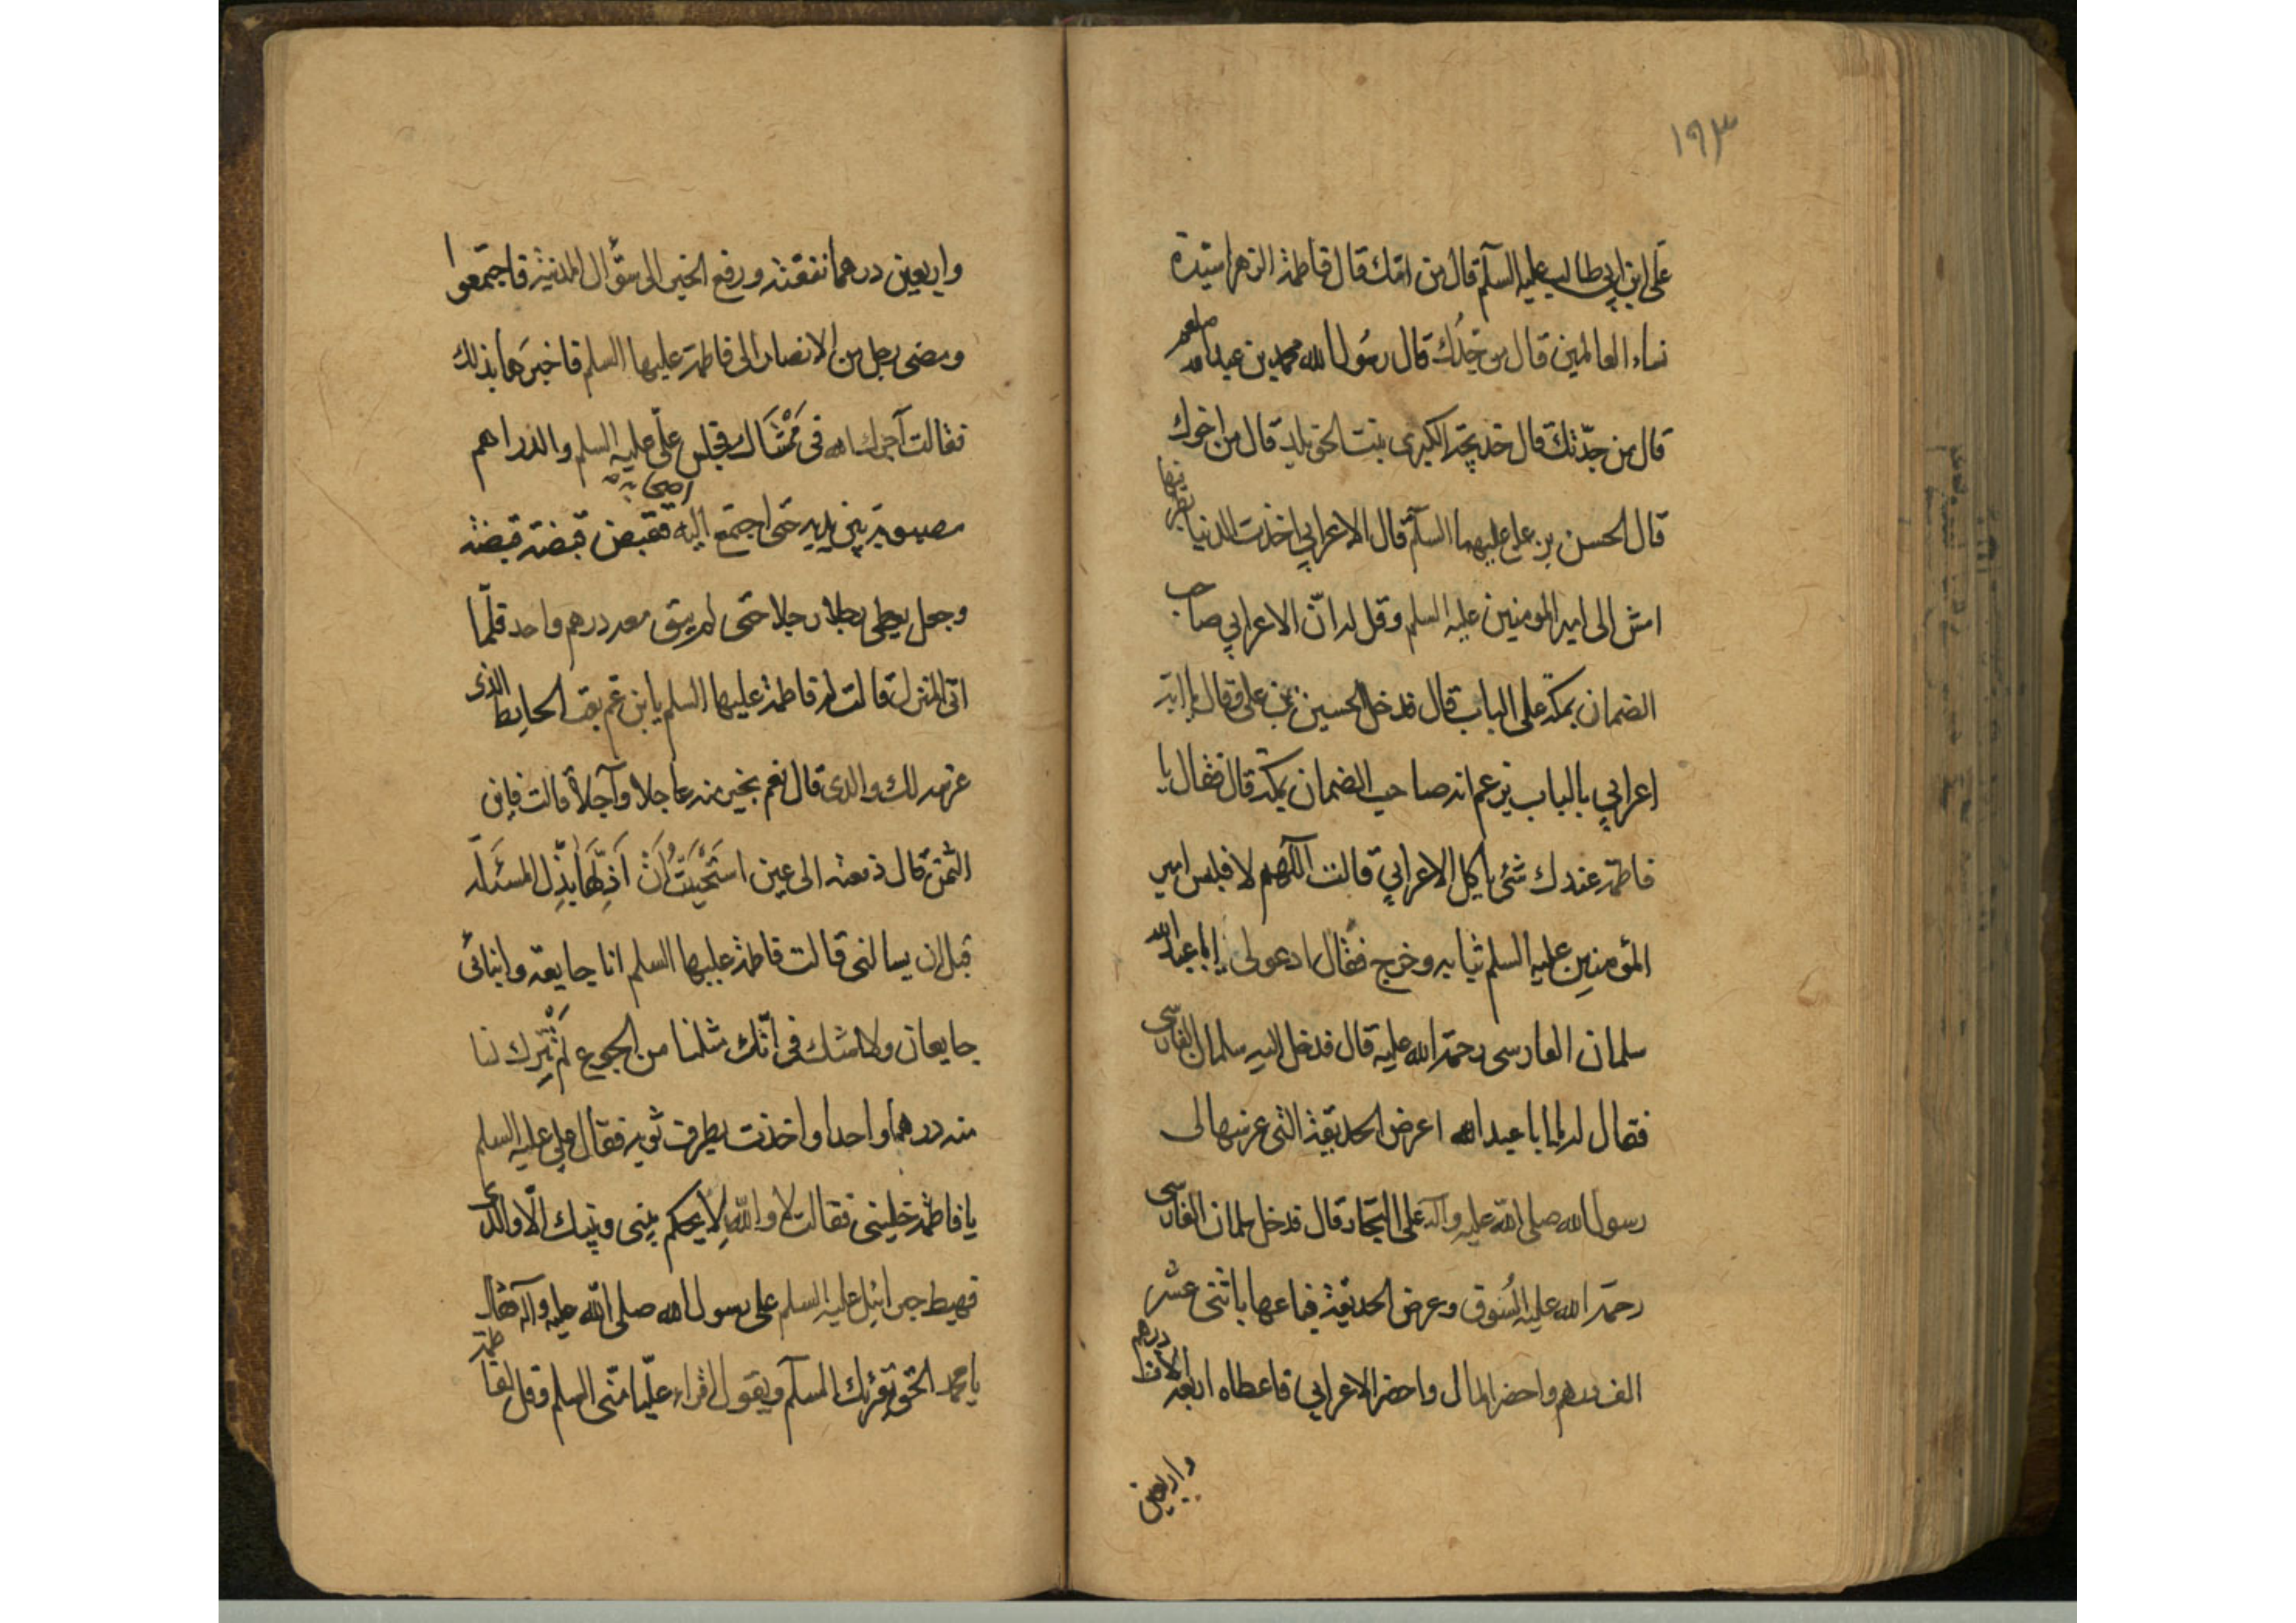 ١٩٣
علی ابن ابی طالب علیه السلم قال من امک قال فاطمة الزهرا سیدة
نساء العالمین قال من جدک قال رسول الله محمد بن عبدالله صلعم
قال من جدتک قال خدیجة الکبری بنت خویلد قال من اخوک
قال الحسن بن علی علیهما السلم قال الاعرابی اخذت الدنیا بطرفیها
امش الی امیر المومنین علیه السلم و قل له انّ الاعرابی صاحب
الضمان بمکة علی الباب قال فدخل الحسین بن علی فقال یا ابة
اعرابی بالباب یزعم انه صاحب الضمان بمکة قال فقال یا
فاطمة عندک شئ یاکل الاعرابی قالت اللهم لا فلبس امیر
المؤمنین علیه السلم ثیابه و خرج فقال ادعو لی ابا عبدالله
سلمان الفارسی رحمة الله علیه قال فدخل الیه سلمان الفارسی
فقال له یا ابا عبدالله اعرض الحدیقة التی غرسها لی
رسول الله صلی الله علیه وآله علی التجار قال فدخل سلمان الفارسی
رحمة الله علیه السُوق و عرض الحدیقة فباعها باثنی عشر
الف درهم و احضر المال و احضر الاعرابی فاعطاه اربعة الاف درهم
و اربعین
و اربعین درهما نفقته و رفع الخبر الی سؤّال المدینة فاجتمعوا
و مضی رجل من الانصار الی فاطمة علیها السلم فاخبرها بذلک
فقالت آجرک الله فی مَمْشَاک فجلس علیّ علیه السلم و الدراهم
مصبوبة بین یدیه حتی اجتمع الیه اصحابه فقبض قبضة قبضة
و جعل یعطی رجلا رجلا حتی لم یبق معه درهم واحد فلمّا
اتی المنزل قالت له فاطمة علیها السلم یابن عم بعت الحایط الذی
غرسه لک والدی قال نعم بخیر منه عاجلا و آجلا قالت فاین
الثمن قال دفعته الی عین استَحْیَیْتُ اَنْ اَذِلَّهَا بذِل المسئلة
قبل ان یسالنی قالت فاطمة علیها السلم انا جایعة و ابنائی
جایعان و لا شک فی انّک مثلنا من الجوع لم یَتْرک لنا
منه درهما واحدا و اخذت بطرف ثوبه فقال علی علیه السلم
یا فاطمة خلینی فقالت لا والله لا یحکم بینی و بینک الّا والدی
فهبط جبرائیل علیه السلم علی رسول الله صلی الله علیه وآله فقال
یا محمد الحق یقرئک السلم و یقول اقراء علیّا منّی السلم و قل لفاطمة